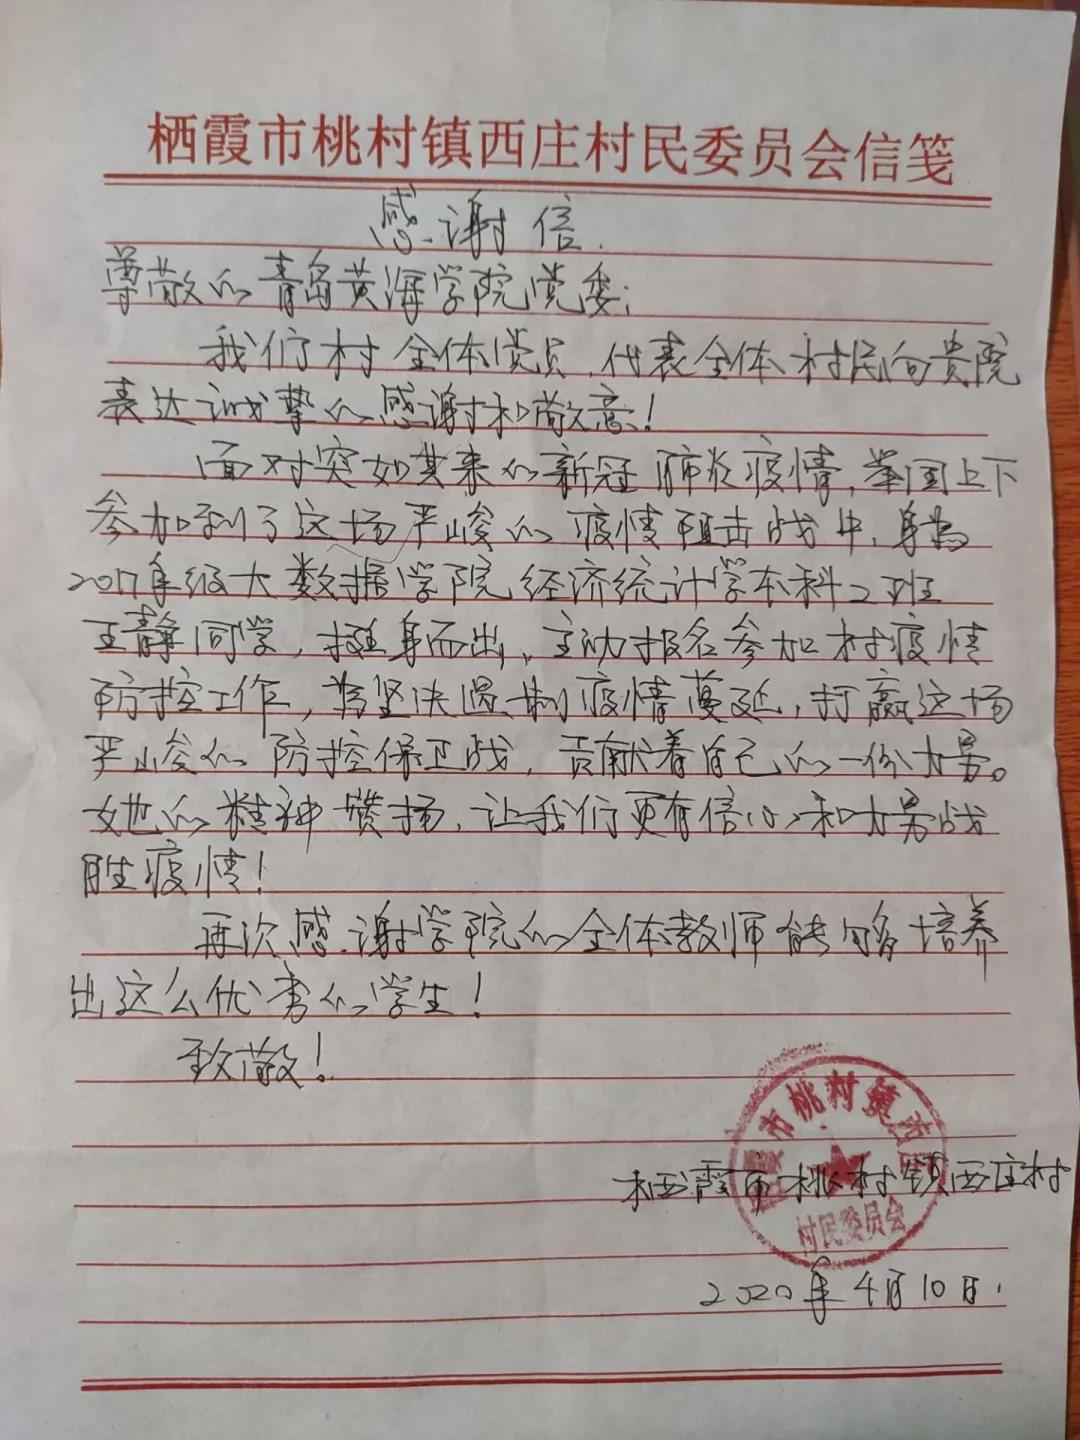 栖霞市桃村镇西庄村民委员会信笺
感谢信.
尊敬的青岛黄海学院党委:
我们村全体党员,代表全体村民向贵院
表达诚挚的感谢和敬意!
面对突如其来的新冠肺炎疫情,举国上下
参加到了这场严峻的疫情阻击战中,身为
2017年级大数据学院经济统计学本科2班
王静同学,挺身而出,主动报名参加村疫情
防控工作,为坚决遏制疫情蔓延,打赢这场
严峻的防控保卫战,贡献着自己的一份力量。
她的精神赞扬,让我们更有信心和力量战
胜疫情!
再次感谢学院的全体教师能够培养
出这么优秀的学生!
致敬!
霞市桃村镇西庄
村民委员会
栖霞市桃村镇西庄村
2020年4月10日.